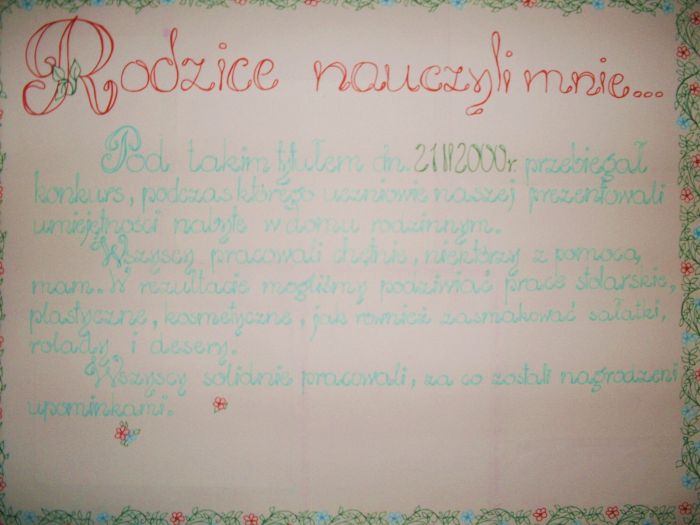 Rodzice nauczyli mnie...
Pod takim tytułem dn. 21 II 2000r. przebiegał
konkurs, podczas którego uczniowie naszej prezentowali
umiejętności nabyte w domu rodzinnym.
Wszyscy pracowali chętnie, niektórzy z pomocą
mam. W rezultacie mogliśmy podziwiać prace stolarskie,
plastyczne, kosmetyczne, jak również zasmakować sałatki,
rolady i desery.
Wszyscy solidnie pracowali, za co zostali nagrodzeni
upominkami.